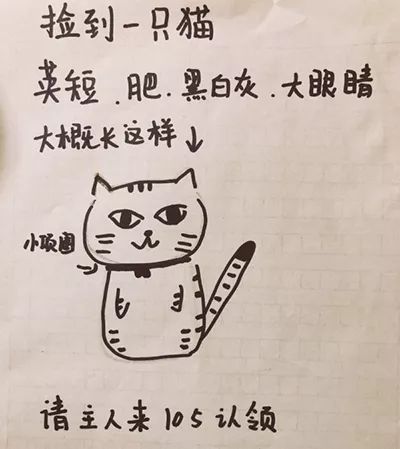 捡到一只猫
英短.肥.黑白灰.大眼睛
大概长这样↓
小项圈
请主人来105认领